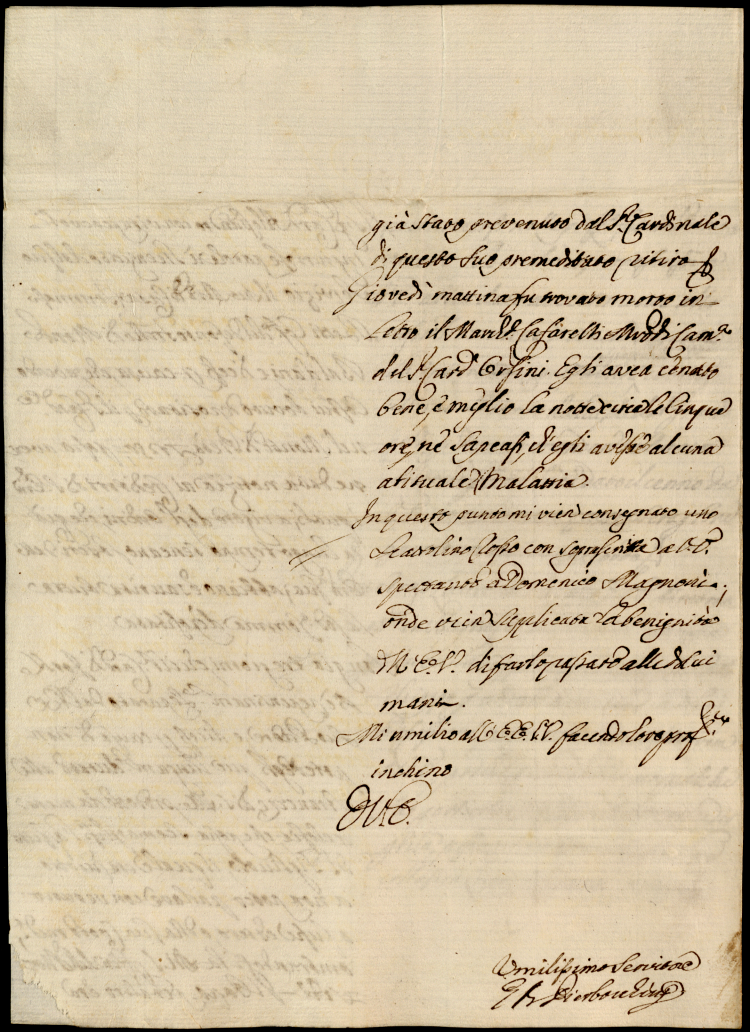 già stato prevenuto dal S.r Cardinale
di questo suo premeditato ritiro
Giovedì mattina fu trovato morto in
Letto il March.e Cafarelli M.ro di Cam.a
del S.r Card. Orsini. Egli avea cenato
bene, e meglio la notte circa le Cinque
ore, nè sapeasi, ch'egli avesse alcuna
abituale Malattia.
In questo punto mi vien consegnato uno
Scatolino con a V.E.
spettante a Domenico Magnani;
onde vien supplicata la benignità
di farlo passare alle di lui
mani.
Mi umilio all' E.E. V.V. facendo loro prof.mo
inchino
D.V.E.
Umilissimo Servitore